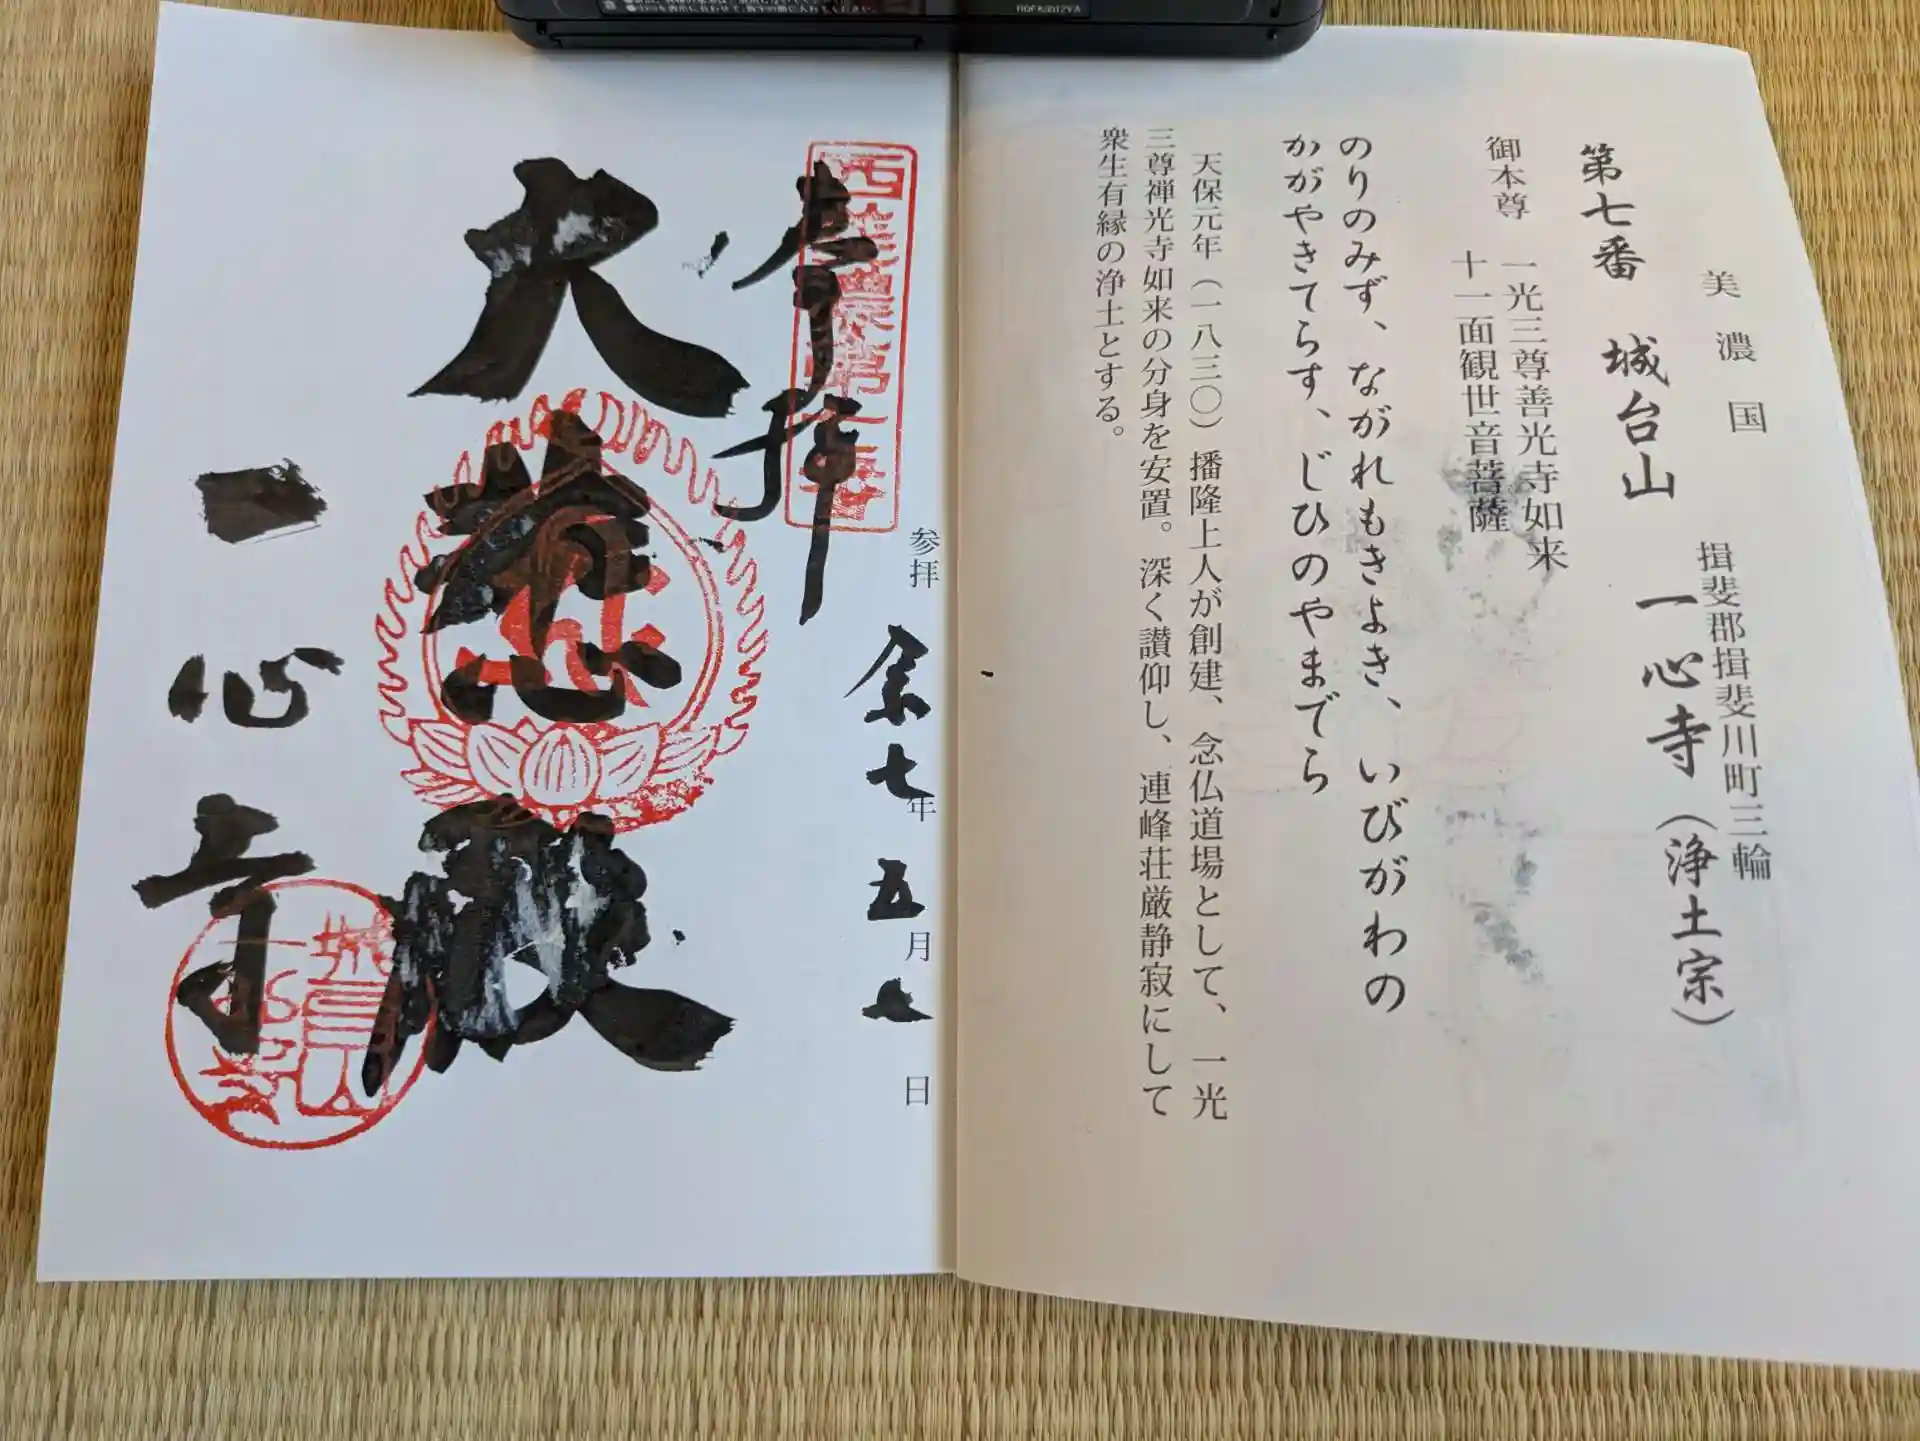 美濃国
揖斐郡揖斐川町三輪
第七番 城台山 一心寺(浄土宗)
御本尊 一光三尊善光寺如来
十一面観世音菩薩
のりのみず、ながれもきよき、いびがわの
かがやきてらす、じひのやまでら
天保元年(一八三〇)播隆上人が創建、念仏道場として、一光
三尊禅光寺如来の分身を安置。深く讃仰し、連峰荘厳静寂にして
衆生有縁の浄土とする。
参拝 令七年五月七日
西美濃第七番
奉拝
大悲殿
一心寺